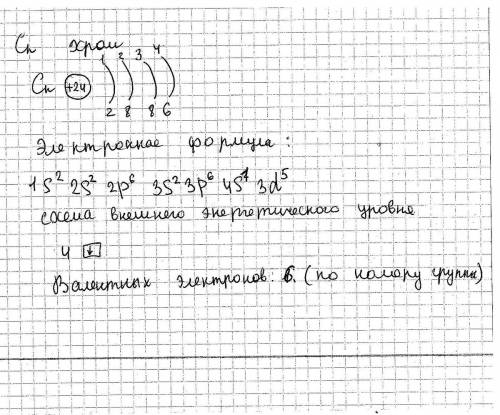 Cr хром
1 2 3 4
Cr +24 ) ) ) )
2 8 8 6
Электронная формула:
1S² 2S² 2p⁶ 3S² 3p⁶ 4S¹ 3d⁵
схема внешнего энергетического уровня
4 ↓
Валентных электронов: 6. (по номеру группы)